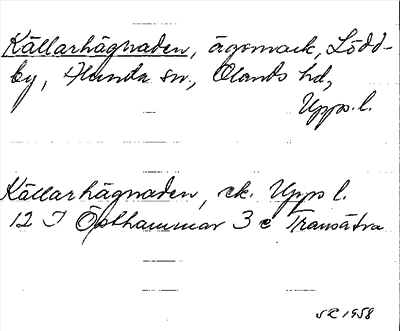 Källarhägnaden, ägomark, Lödd-
by, Alunda sn, Olands hd,
Upps. l.
Källarhägnaden, ek. Upps l.
12 I Östhammar 3 c Transätra
1958